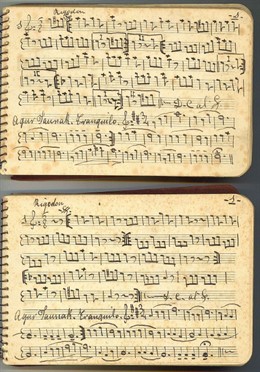 Rigodon
-1-
D.C. al S.
Agur Jaunak. Tranquilo.
Rigodon
-1-
D.C. al S.
Agur Jaunak. Tranquilo.